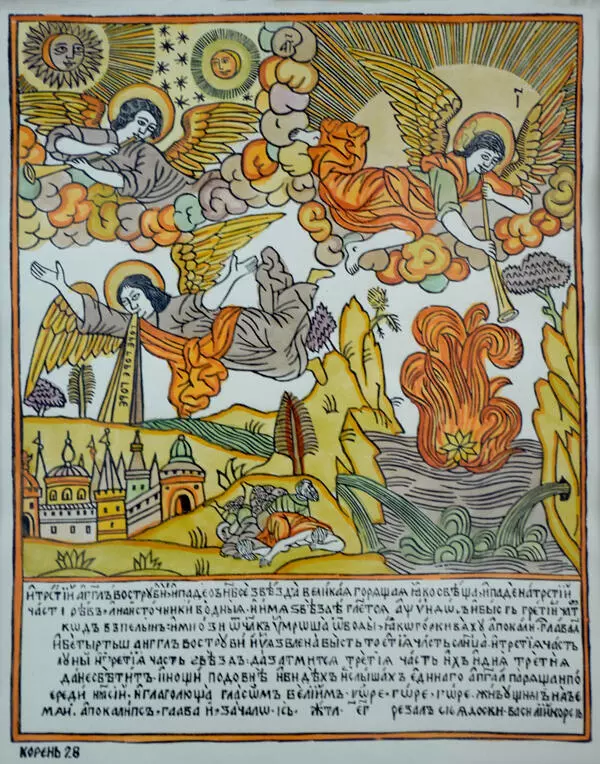 ГОРЕ ГОРЕ ГОРЕ
И ТРЕТIЙ АГГЛЪ ВОСТРУБИ И ПАДЕ НБСЕ ЗВЕЗДА ВЕЛИКАЯ ГОРЯЩАЯ ЯКО СВѢЩА И ПАДЕ НА ТРЕТIЙ
ЧАСТ I РѢВЪ И НА ИСТОЧНИКИ ВОДНЫЯ И ИМЯ ЗВЕЗДѢ ГЛЕТСЯ И БЫСТЬ ТРЕТIЙ
ВЪ ПЕЛЫНЪ И МНОЗИ Ѿ ЧЛКЪ УМРОША Ѿ ВОДЫ ЯКО ГОРКИ БАХУ АПОКАЛИ ГЛАВА
И ЧЕТЫРТЫИ АНГГЛЪ ВОСТРУБИ И УЯЗВЛЕНА БЫСТЬ ТРЕТIЯ ЧАСТЬ СЛНЦА И ТРЕТIЯ ЧАСТЬ
ЛУНЫ И ТРЕТIЯ ЧАСТЬ ЗВѢЗДЪ ДА ЗАТМИТСЯ ТРЕТIЯ ЧАСТЬ ИХЪ И ДНЯ ТРЕТIЯ
ДА НЕ СВѢТИТЪ И НОЩИ ПОДОБНѢ И ВИДѢХЪ И СЛЫШАХЪ ЕДИНАГО АГГЛА ПАРЯЩА ПО
СРЕДИ И ГЛАГОЛЮЩА ГЛАСОМЪ ВЕЛIИМЪ ГОРЕ ГОРЕ ГОРЕ ЖИВУЩЫМ НА ЗЕ
МЛИ АПОКАЛИПСЪ ГЛАВА И ЗАЧАЛО РЕЗАЛЪ СIЯ ДОСКИ ВАСИЛIЙ КОРЕНЬ
КОРЕНЬ 28